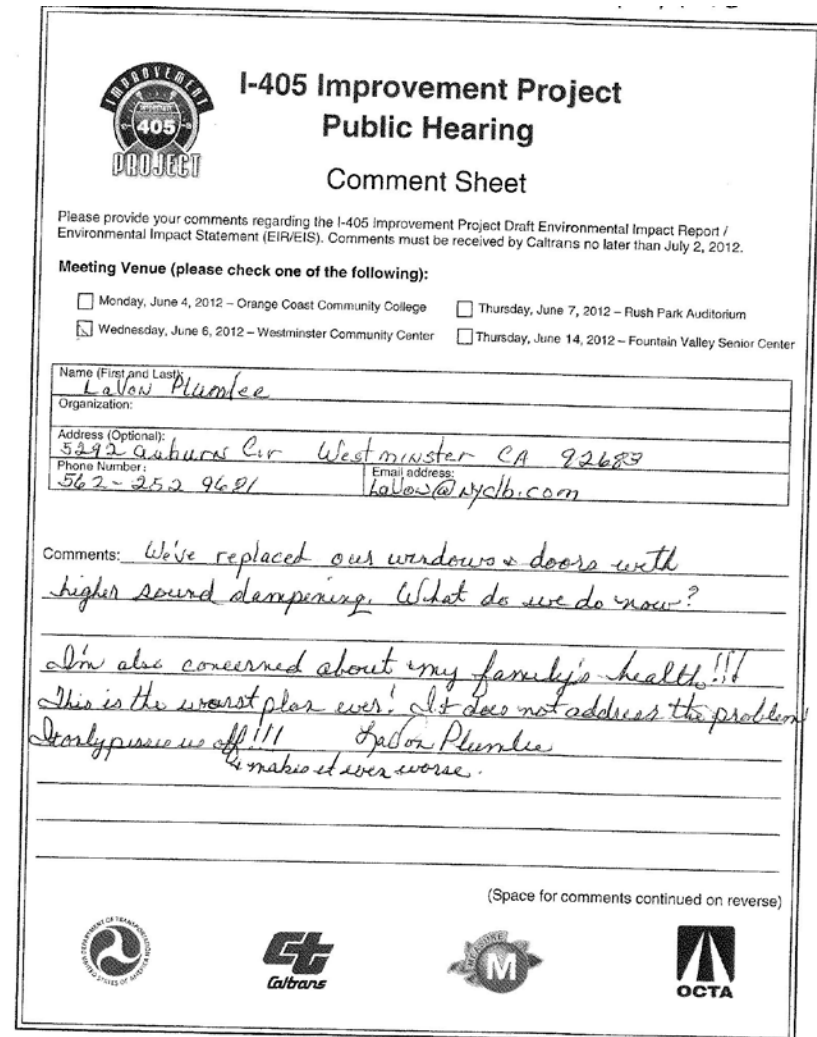 IMPROVEMENT
405
PROJECT
I-405 Improvement Project
Public Hearing
Comment Sheet
Please provide your comments regarding the I-405 Improvement Project Draft Environmental Impact Report /
Environmental Impact Statement (EIR/EIS). Comments must be received by Caltrans no later than July 2, 2012.
Meeting Venue (please check one of the following):
Monday, June 4, 2012 – Orange Coast Community College
Thursday, June 7, 2012 – Rush Park Auditorium
Wednesday, June 6, 2012 – Westminster Community Center
Thursday, June 14, 2012 – Fountain Valley Senior Center
Name (First and Last):
LaVon Plumlee
Organization:
Address (Optional):
5292 Auburn Cir Westminster CA 92683
Phone Number:
562-252 9681
Email address:
LaVon@nyclb.com
Comments: We've replaced our windows & doors with
higher sound dampening. What do we do now?
I'm also concerned about my family's health!!!
This is the worst plan ever! It does not address the problem
It only pisses us off!!! LaVon Plumlee
& makes it even worse.
(Space for comments continued on reverse)
DEPARTMENT OF TRANSPORTATION
UNITED STATES OF AMERICA
Caltrans
MEASURE
M
OCTA